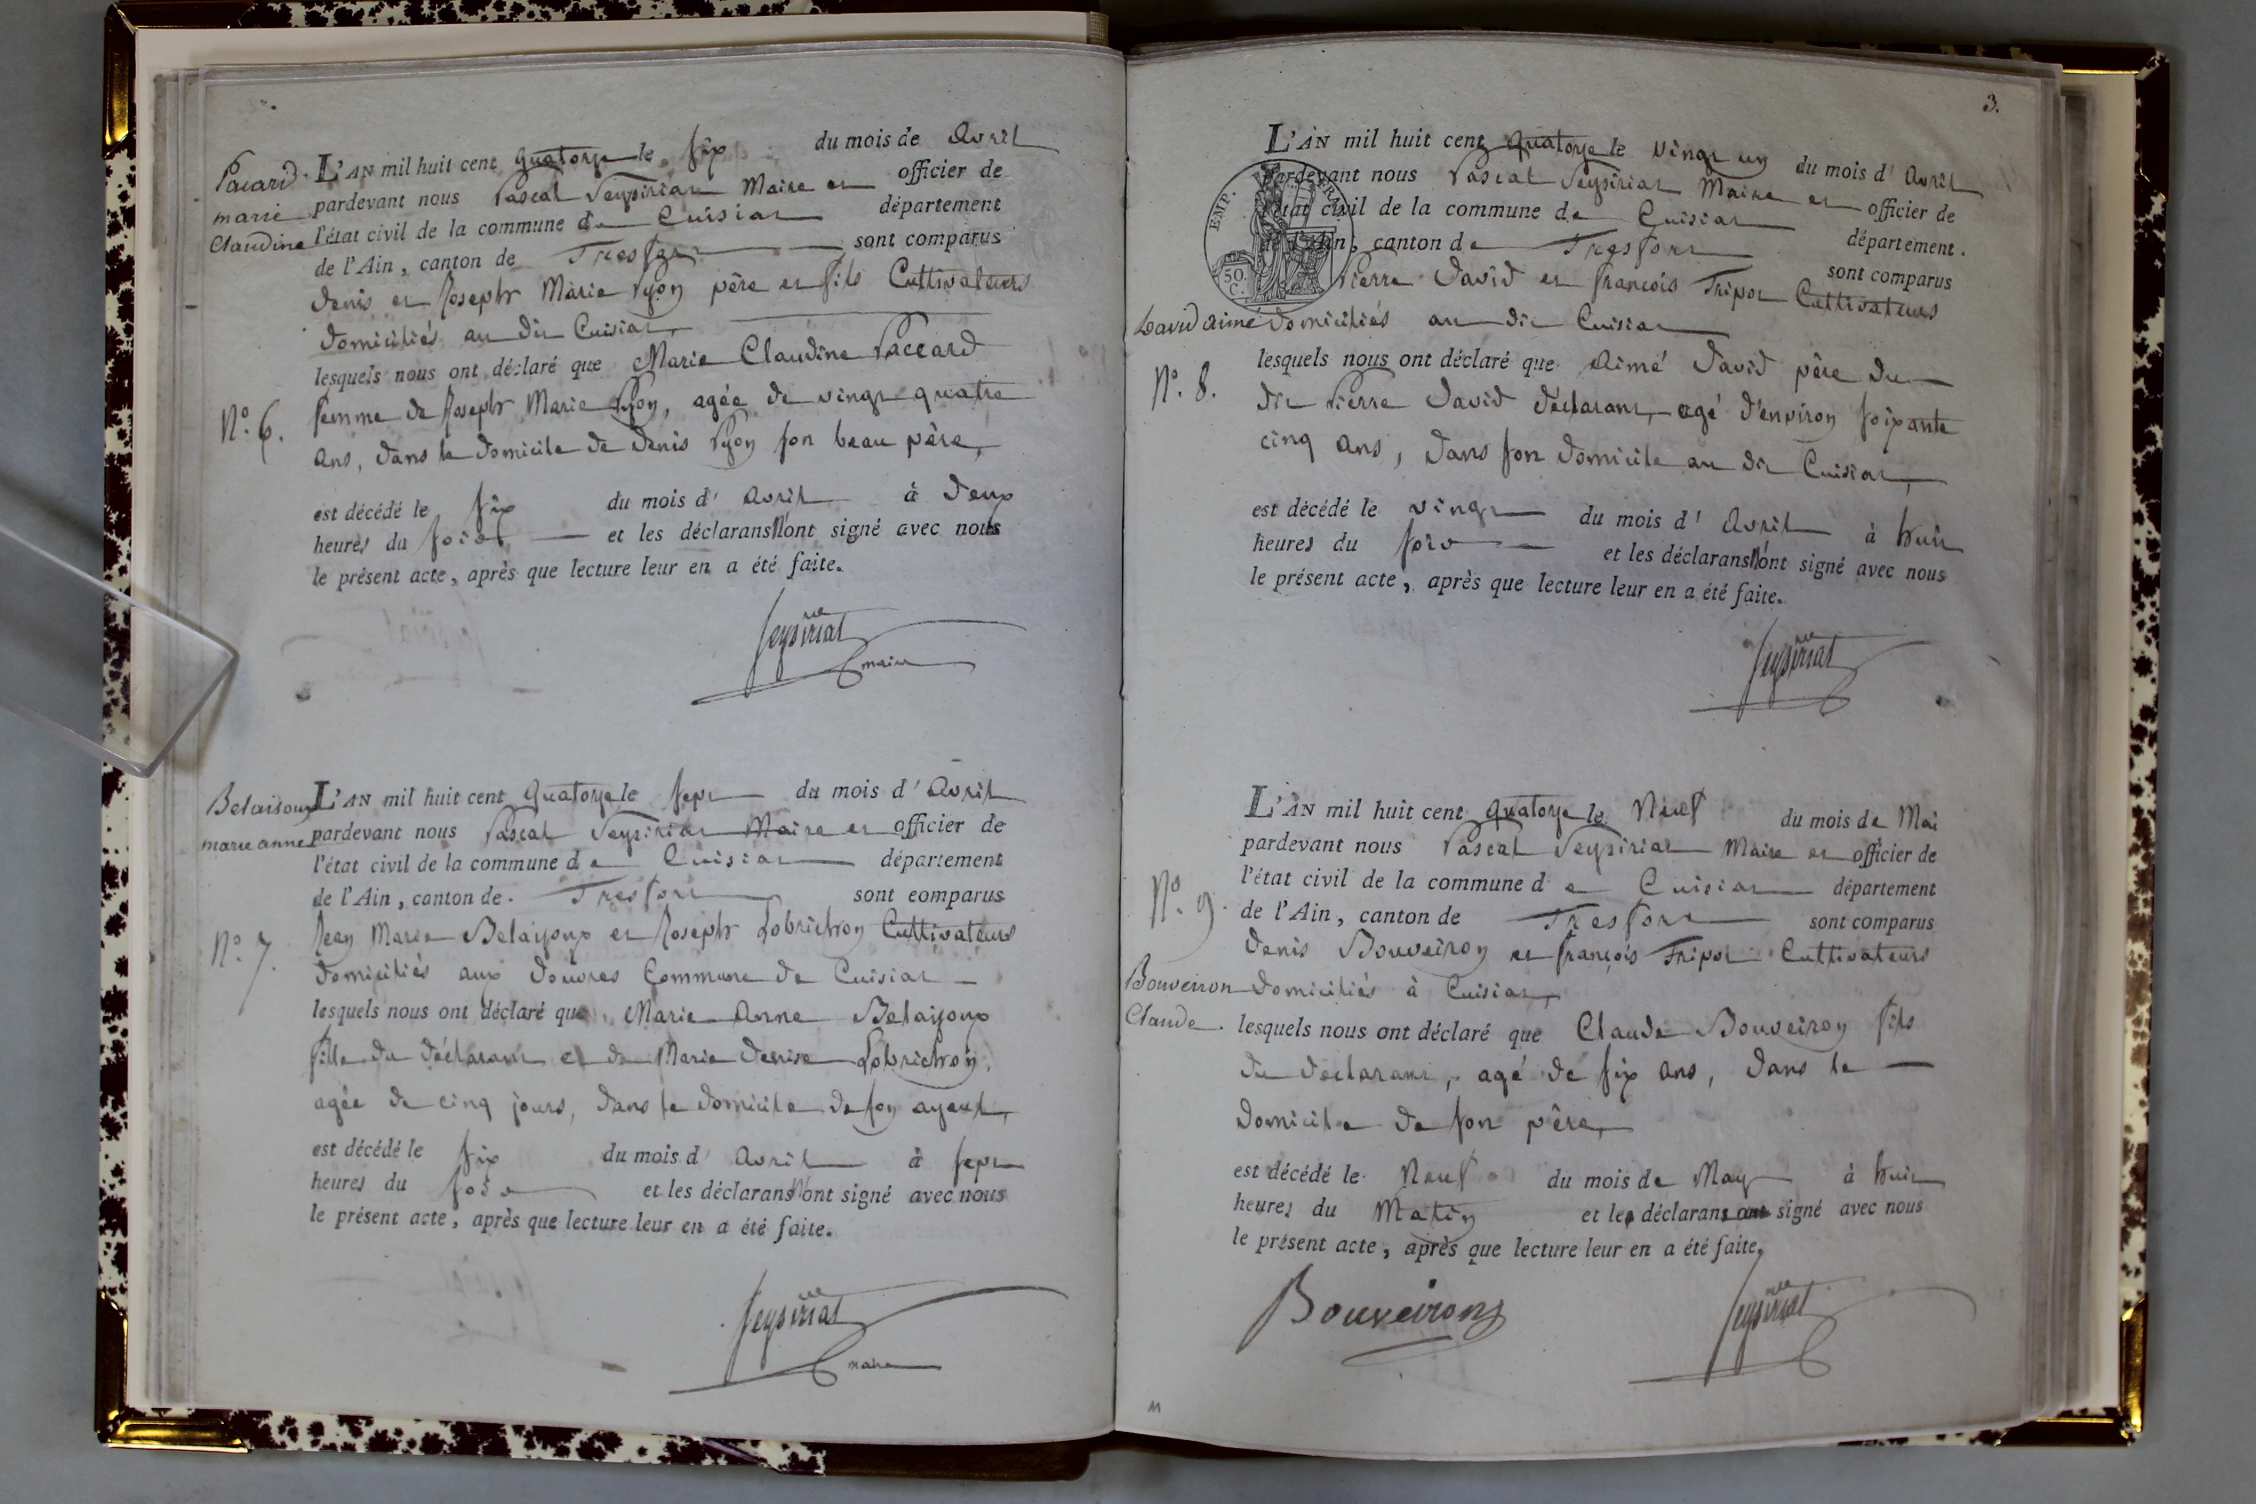 Pacard
marie
Claudine
L'AN mil huit cent quatorze le six du mois de Avril
pardevant nous Pascal Seyssiriat Maire et officier de
l'état civil de la commune de Cuisiat département
de l'Ain, canton de Tresfort sont comparus
Denis et Joseph Marie Pyon père et fils Cultivateurs
domiciliés au dit Cuisiat,
lesquels nous ont déclaré que Marie Claudine Paccard
N.o 6.
femme de Joseph Marie Pyon, agée de vingt quatre
ans, dans le domicile de Denis Pyon son beau père,
est décédé le six du mois d' avril à deux
heures du soir et les déclarans n'ont signé avec nous
le présent acte, après que lecture leur en a été faite.
Seysiriat
maire
Belaisoux
marie anne
L'AN mil huit cent quatorze le sept du mois d' Avril
pardevant nous Pascal Seysiriat Maire et officier de
l'état civil de la commune de Cuisiat département
de l'Ain, canton de Tresfort sont comparus
N.o 7.
Jean Marie Belaysoux et Joseph Lobrichon Cultivateurs
domiciliés aux douvres Commune de Cuisiat
lesquels nous ont déclaré que Marie Anne Belaysoux
fille du déclarant et de Marie Denise Lobrichon,
agée de cinq jours, dans le domicile de son ayeul,
est décédé le six du mois d' avril à sept
heures du soir et les déclarans n'ont signé avec nous
le présent acte, après que lecture leur en a été faite.
Seysiriat
maire
3.
L'AN mil huit cent quatorze le vingt un du mois d' Avril
pardevant nous Pascal Seysiriat Maire et officier de
l'état civil de la commune de Cuisiat département
de l'Ain, canton de Tresfort sont comparus
EMP. FRAN.
50. C.
Pierre David et françois Tripoz Cultivateurs
David aimé
domiciliés au dit Cuisiat
lesquels nous ont déclaré que Aimé David père du
N.o 8.
dit Pierre David déclarant, agé d'environ soixante
cinq ans, dans son domicile au dit Cuisiat,
est décédé le vingt du mois d' Avril à huit
heures du soir et les déclarans n'ont signé avec nous
le présent acte, après que lecture leur en a été faite.
Seysiriat
L'AN mil huit cent quatorze le Neuf du mois de Mai
pardevant nous Pascal Seysiriat Maire et officier de
l'état civil de la commune de Cuisiat département
N.o 9.
de l'Ain, canton de Tresfort sont comparus
Denis Bouveiron et françois Tripoz Cultivateurs
Bouveiron
Claude.
domiciliés à Cuisiat,
lesquels nous ont déclaré que Claude Bouveiron fils
du déclarant, agé de six ans, dans le
domicile de son père,
est décédé le Neuf du mois de May à huit
heures du Matin et les déclarans ont signé avec nous
le présent acte, après que lecture leur en a été faite.
Bouveiron
Seysiriat